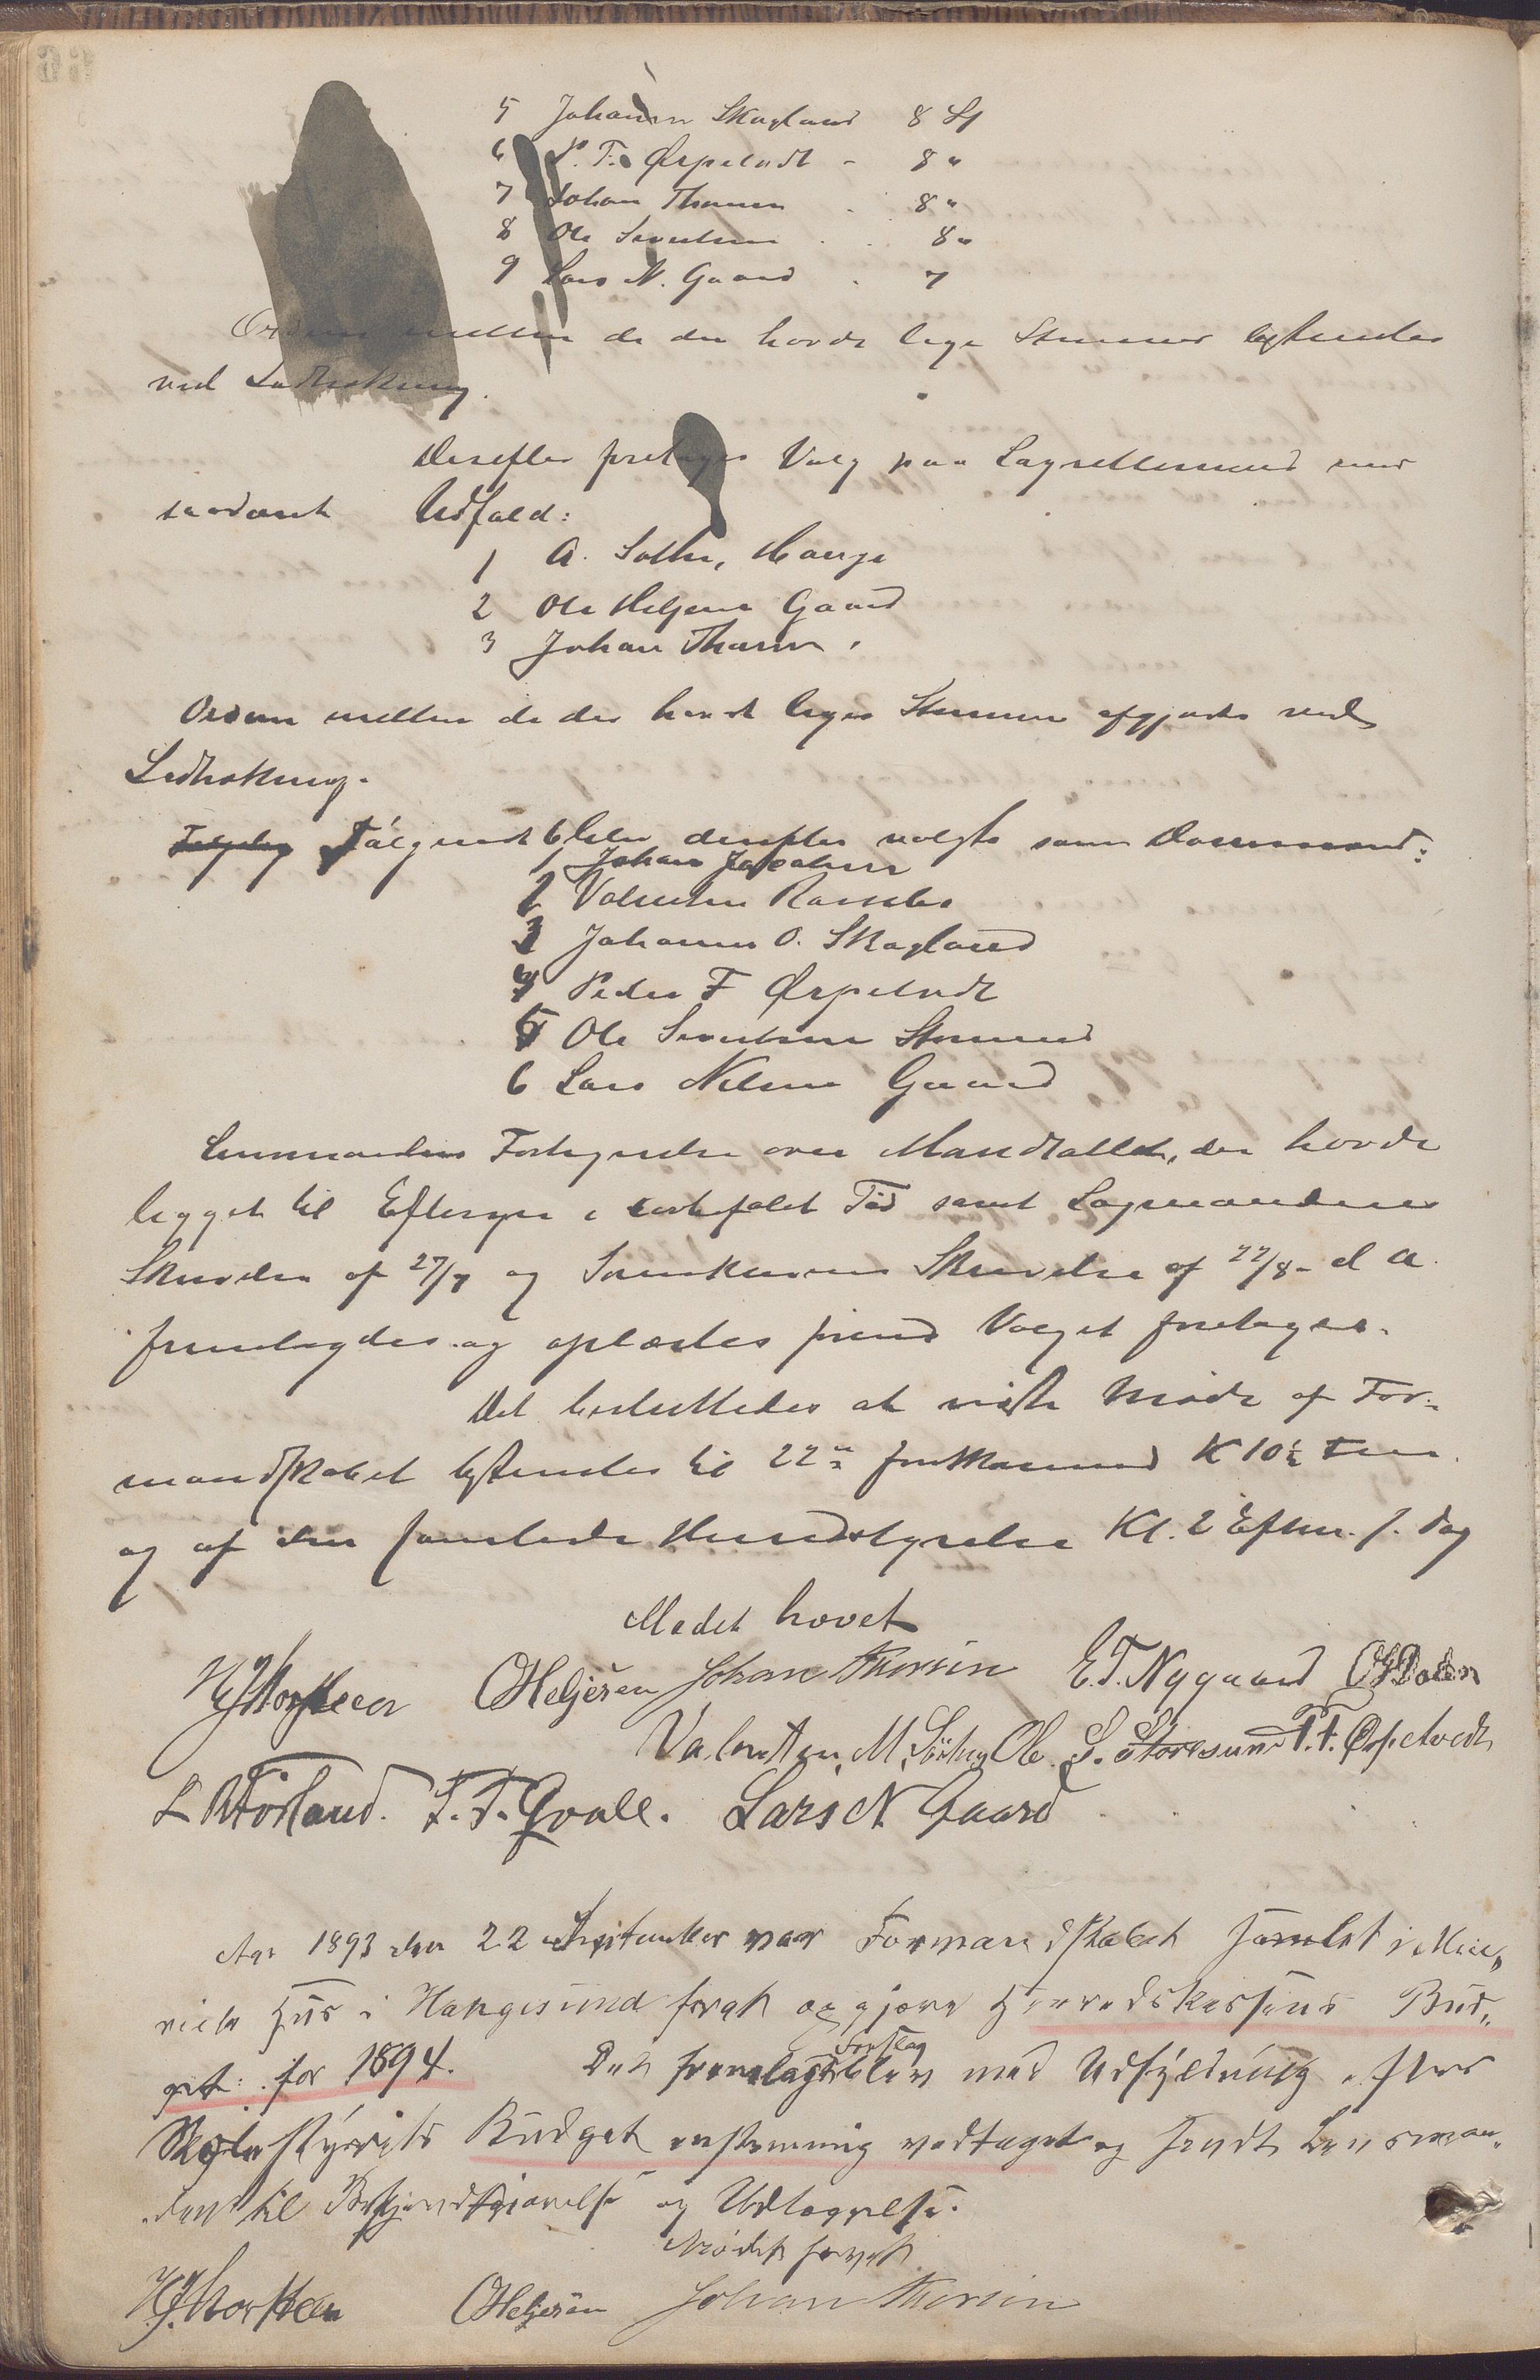 5 Johannes Skagland 8 St
6 P. T. Ørpetvedt - 8 "
7 Johan Thorsen . 8 "
8 Ole Sivertsen . . 8 "
9 Lars N. Gaard . 7
Orden mellem de der havde lige Stemmer bestemtes
ved Lodtrækning.
Derefter foretoges Valg paa Lagrettemænd med
saadant Udfald:
1 A. Sothe, Hauge
2 Ole Heljesen Gaard
3 Johan Thorsen.
Orden mellem de der havde liges Stemmer afgjordes ved
Lodtrækning.
Følgende 6 blev derefter valgte som Domsmænd:
1 Johan Jacobsen
2 Valentin
3 Johannes O. Skagland
4 Peder T Ørpetvedt
5 Ole Sivertsen
6 Lars Nilsen Gaard
Lensmandens Fortegnelse over Mandtallet, der havde
ligget til Eftersyn i lovbefalet Tid samt Lagmandens
Skrivelse af 27/7 og Sorenskriverens Skrivelse af 22/8 - d A.
fremlagdes og oplæstes forend Valget foretoges.
Det besluttedes at næste Møde af For-
mandskabet bestemtes til 22de Kl 10½ Form.
og af den samlede Herredstyrelse Kl. 2 Efterm. s. Dag
Mødet hævet
O Heljesen Johan Thorsen E. T. Nygaard
Valentin M. Ole S. Storesund P. T. Ørpetvedt
L. Førland. T. T. Qvale. Lars N Gaard
Aar 1893 den 22 September var Formandskabet samlet i
Hus i Haugesund forat opgjøre Herredskassens Bud-
get for 1894. Det fremlagte Forslag blev med Udfyldning efter
Skolestyrets Budget enstemmig vedtaget og sendt Lensman-
den til Bekjendtgjørelse og Udlæggelse.
Mødet hævet
O Heljesen Johan Thorsen